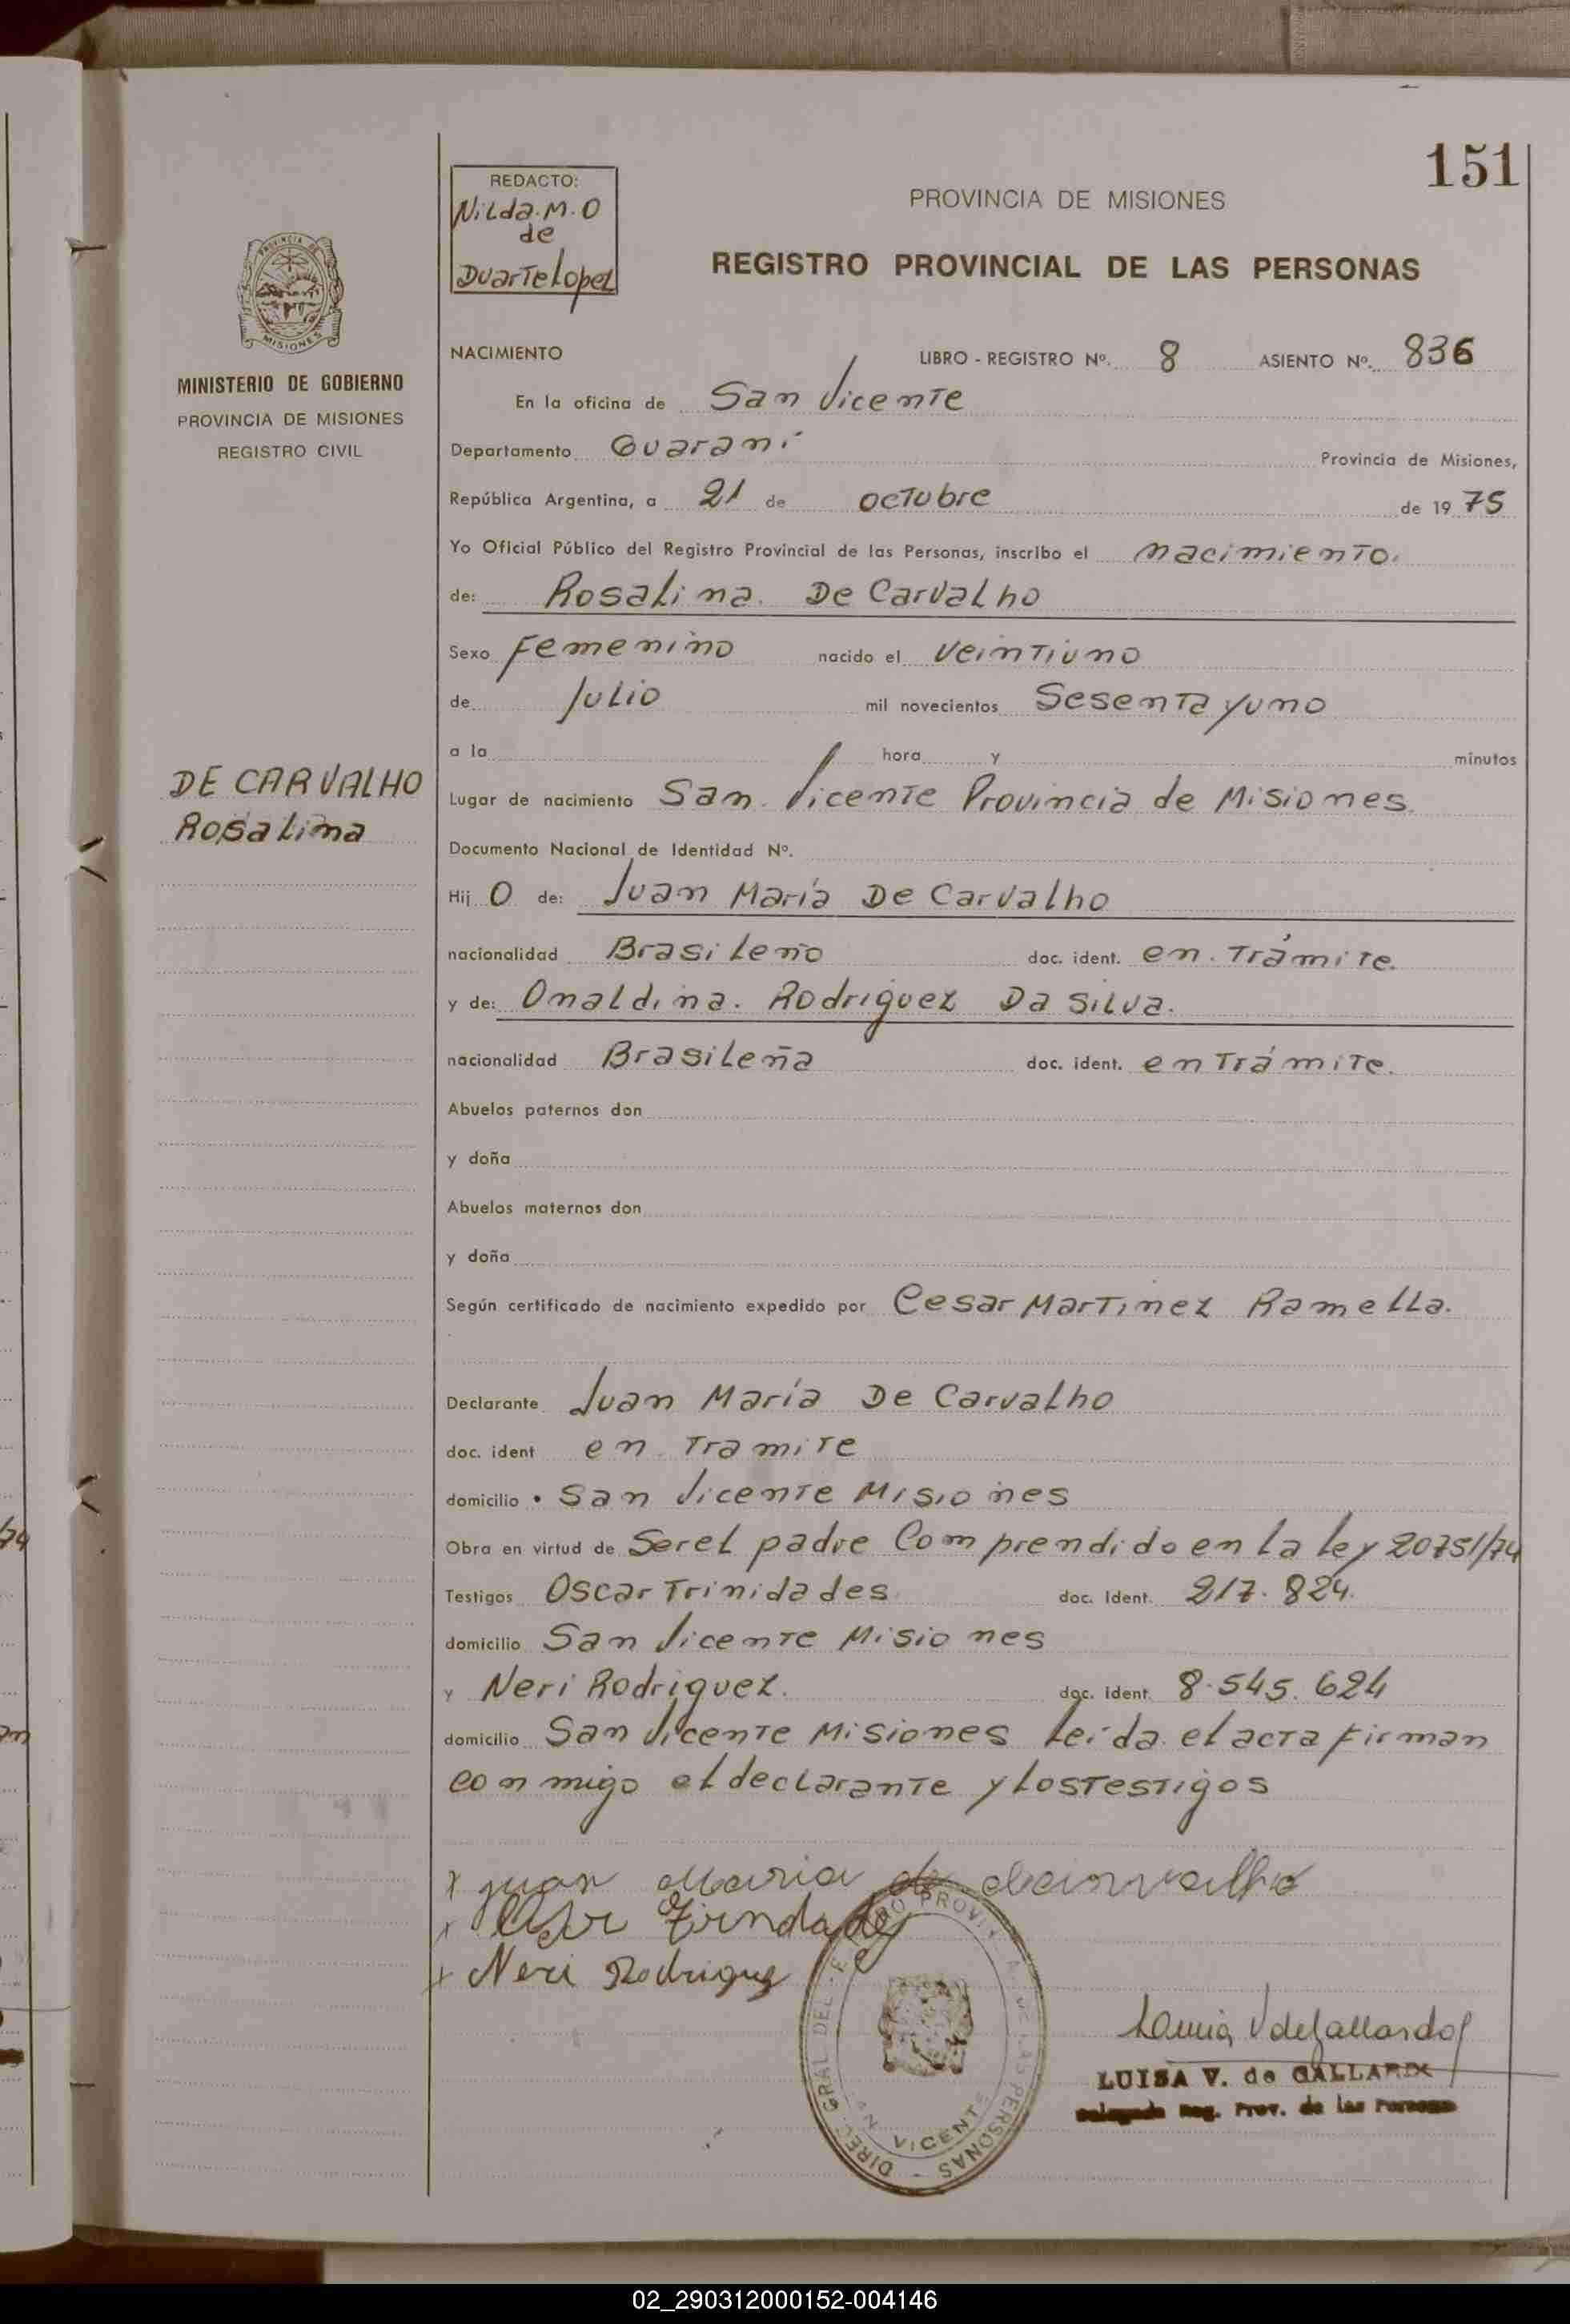 151
REDACTO:
Nilda.M.O
de
Duarte Lopez
PROVINCIA DE MISIONES
REGISTRO PROVINCIAL DE LAS PERSONAS
PROVINCIA DE
MISIONES
MINISTERIO DE GOBIERNO
PROVINCIA DE MISIONES
REGISTRO CIVIL
NACIMIENTO LIBRO - REGISTRO Nº. 8 ASIENTO Nº. 836
En la oficina de San Vicente
Departamento Guaraní Provincia de Misiones,
República Argentina, a 21 de octubre de 1975
Yo Oficial Público del Registro Provincial de las Personas, inscribo el nacimiento.
de: Rosalina. De Carvalho
Sexo Femenino nacido el veintiuno
de Julio mil novecientos Sesenta y uno
a la hora y minutos
DE CARVALHO
Rosalina
Lugar de nacimiento San. Vicente Provincia de Misiones.
Documento Nacional de Identidad Nº.
Hij O de: Juan María De Carvalho
nacionalidad Brasileño doc. ident. en. Trámite.
y de: Onaldina. Rodríguez Da Silva.
nacionalidad Brasileña doc. ident. en Trámite.
Abuelos paternos don
y doña
Abuelos maternos don
y doña
Según certificado de nacimiento expedido por Cesar Martinez Ramella.
Declarante Juan María De Carvalho
doc. ident en Tramite
domicilio San Vicente Misiones
Obra en virtud de Ser el padre Comprendido en la Ley 20751/74
Testigos Oscar Trinidades doc. Ident. 217.824.
domicilio San Vicente Misiones
y Neri Rodriguez. doc. ident. 8.545.624
domicilio San Vicente Misiones Leída el acta firman
conmigo el declarante y los testigos
x juan Maria de
x
x Neri Rodriguez
DIREC. GRAL DEL REGISTRO PROVINCIAL DE LAS PERSONAS
SAN VICENTE
LUISA V. de GALLARDO
Delegada Reg. Prov. de las Personas
02_290312000152-004146